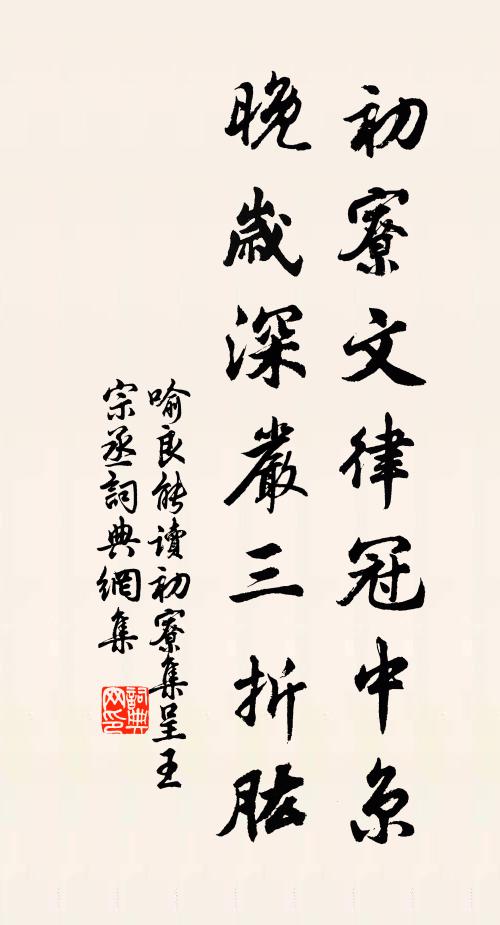 初寮文律冠中京
晚歲深嚴三折肱
喻良能讀初寮集呈王
宗丞詞典網集
詞典網印